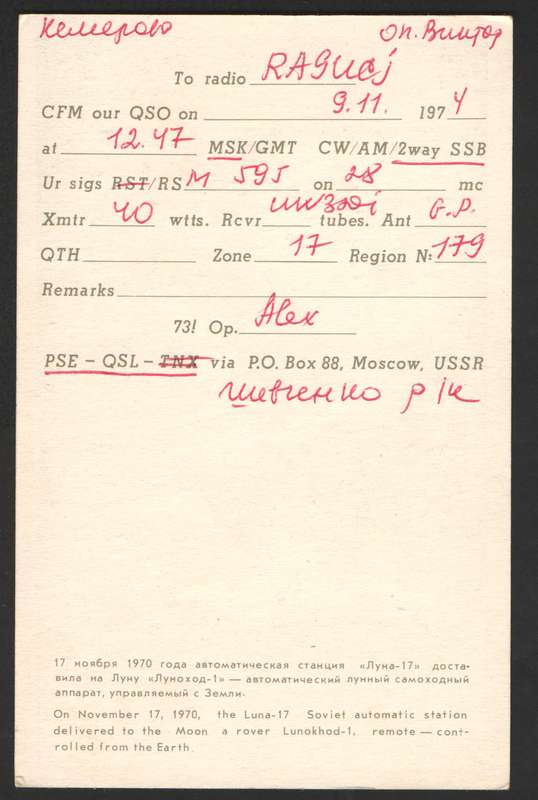 Кемерово оп. Виктор
To radio RA9UCJ
CFM our QSO on 9.11. 1974
at 12.47 MSK/GMT CW/AM/2way SSB
Ur sigs RST/RS M 595 on 28 mc
Xmtr 40 wtts. Rcvr tubes. Ant G.P.
QTH Zone 17 Region N: 179
Remarks
73! Op. Alex
PSE – QSL – TNX via P.O. Box 88, Moscow, USSR
Шевченко р/к
17 ноября 1970 года автоматическая станция «Луна-17» доста-
вила на Луну «Луноход-1» — автоматический лунный самоходный
аппарат, управляемый с Земли.
On November 17, 1970, the Luna-17 Soviet automatic station
delivered to the Moon a rover Lunokhod-1, remote — cont-
rolled from the Earth.